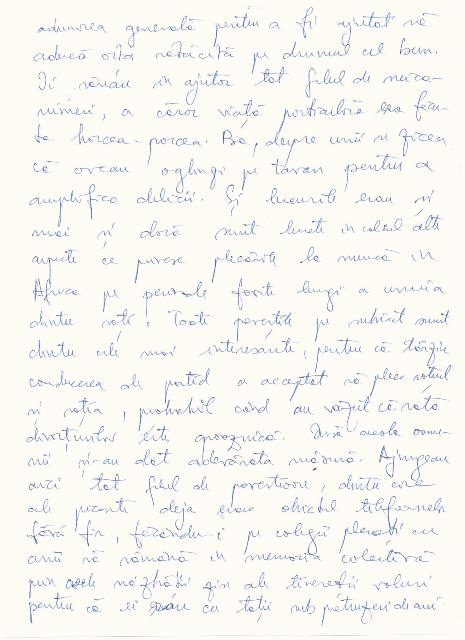 adunarea generală pentru a fi ajutat să
aducă oița rătăcită pe drumul cel bun.
Îi săreau în ajutor tot felul de neica-
nimeni, a căror viață particulară era făcu-
tă horcea-porcea. Ba, despre unii se zicea
că aveau oglinzi pe tavan pentru a
amplifica deliciile. Și lucrurile erau și
mai și dacă sunt luate în calcul alte
aspecte ce privesc plecările la muncă în
Africa pe perioade foarte lungi a unuia
dintre soți. Toate poveștile pe subiect sunt
dintre cele mai interesante, pentru că târziu
conducerea de partid a acceptat să plece soțul
și soția, probabil când au văzut că rata
divorțurilor este groaznică. Însă acolo oame-
nii și-au dat adevărata măsură. Ajungeau
aici tot felul de povestioare, dintre care
cele picante deja erau obiectul telefoanelor
fără fir, făcându-i pe colegii plecați cu
anii să rămână în memoria colectivă
prin acele năzbâtii ale tinereții
pentru că ei erau cu toții sub patruzeci de ani.